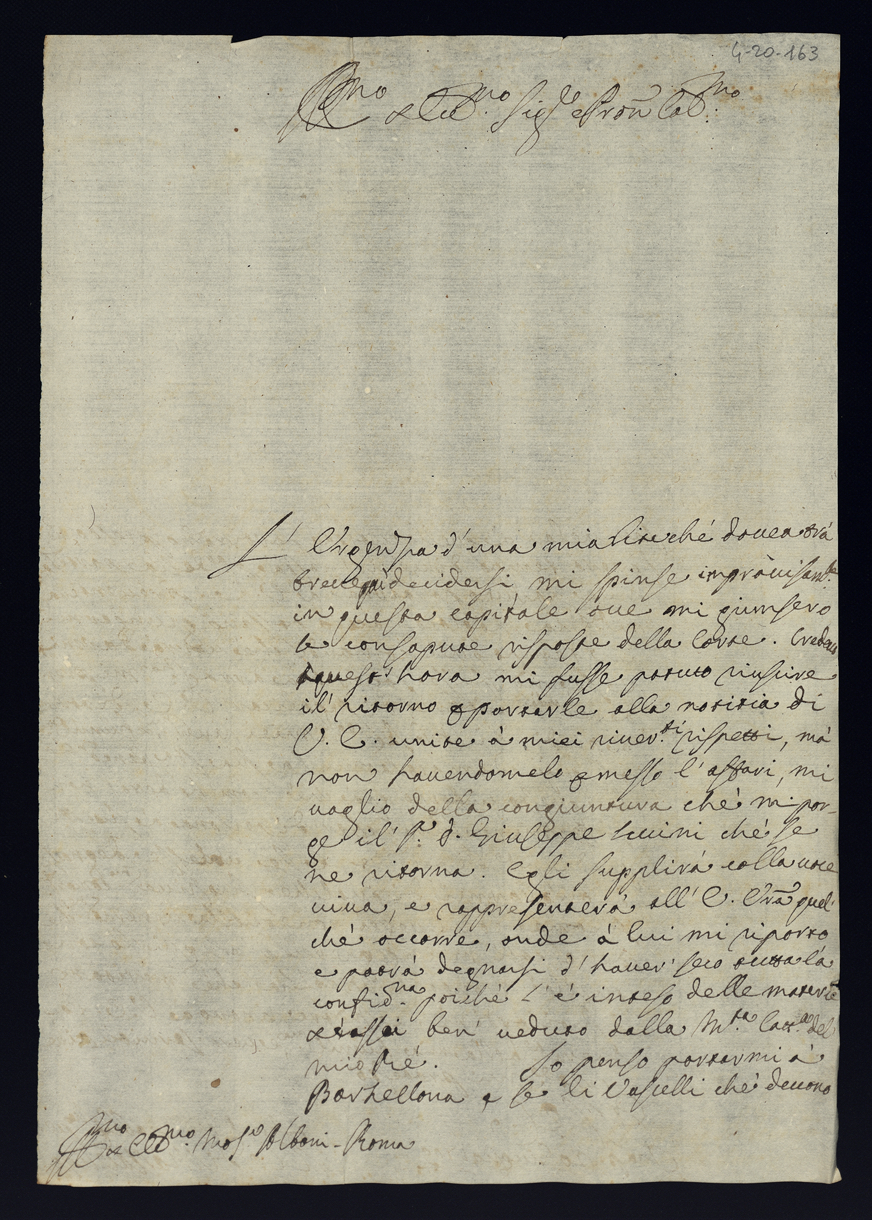 4-20-163
R.mo et Ecc.mo Sig.re Pron Col.mo
L' Urgenza d' una mia lite ché dovea trá
breve decidersi mi spinse improvisam.te
in questa capitale ove mi giunsero
le consapute risposte della Corte. Credevo
á quest' hora mi fusse potuto riuscire
il' ritorno e portarle alla notitia di
V. E. unite á miei river.ti rispetti, má
non havendomelo pmesso l' affari, mi
vaglio della congiuntura ché mi por-
ge il' P. D. Giuseppe che' se
ne ritorna. Egli supplirá colla voce
viva, e rappresenterá all' E. Vrã quel
ché occorre, onde á lui mi riporto
e potrá degnarsi d' haver' seco tutta lá
confid.na poiché l' é inteso delle materie
et assai ben' veduto dalla M.tá Catt.ca del
mio Ré. Io penso portarmi á
Barzellona e se li Vascelli ché devono
R.mo et Ecc.mo Mos.re Albani - Roma